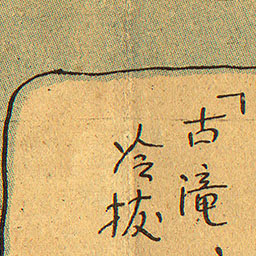 「古滝
冷抜